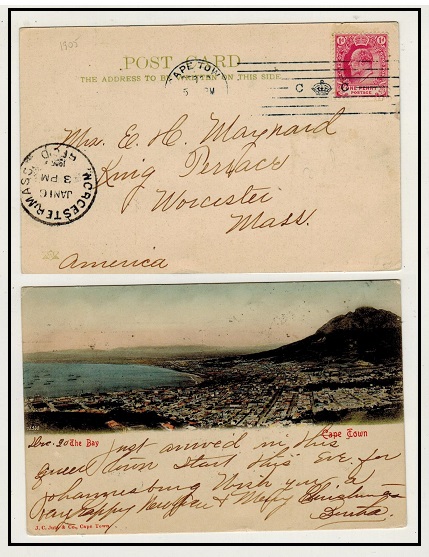 1905
POST CARD
THE ADDRESS TO BE WRITTEN ON THIS SIDE
CAPE TOWN
5 PM
C C
1d 1d
ONE PENNY
POSTAGE
Mrs. E. H. Maynard
King Terrace
Worcester
Mass.
America
WORCESTER, MASS.
JAN 10
3 PM
REC'D
The Bay
Cape Town
Dec. 20
Just arrived in this
queer town start this Eve. for
Johannesburg Wish you a
Happy New Year & Merry Christmas
J. C. Juta & Co., Cape Town.